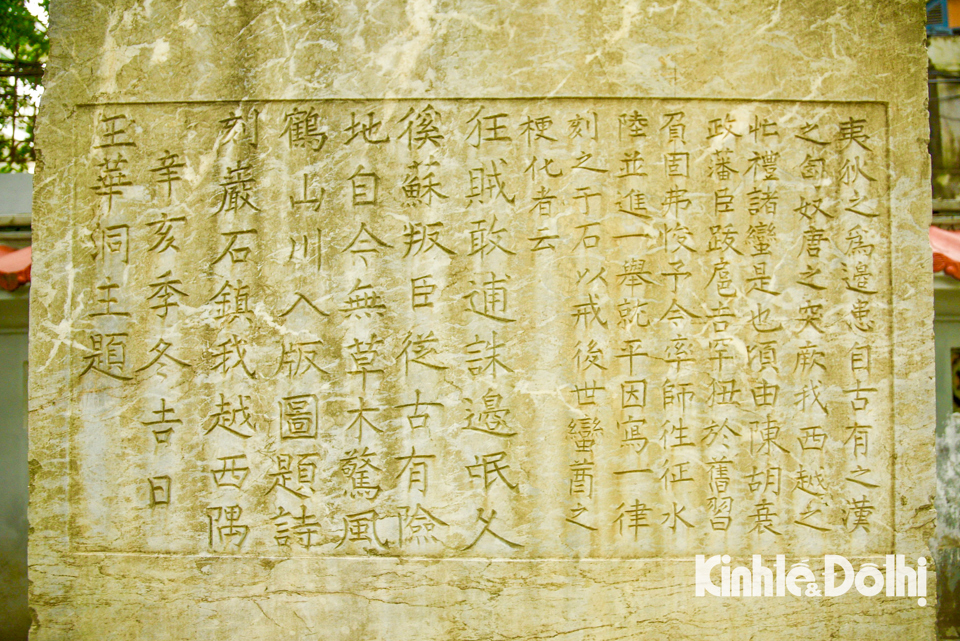 夷狄之爲邉患自古有之漢
之匈奴唐之突厥我西越之
忙禮諸蠻是也頃由陳胡衰
政藩臣跋扈吉罕狃於舊習
負固弗悛予今率師徃征水
陸並進一舉就平因寫一律
刻之于石以戒後世蠻酋之
梗化者云
狂賊敢逋誅邊氓久
徯蘇叛臣從古有險
地自今無草木驚風
鶴山川入版圖題詩
刻巖石鎮我越西隅
辛亥季冬吉日
玉華洞主題
Kinhtế&Đôthị